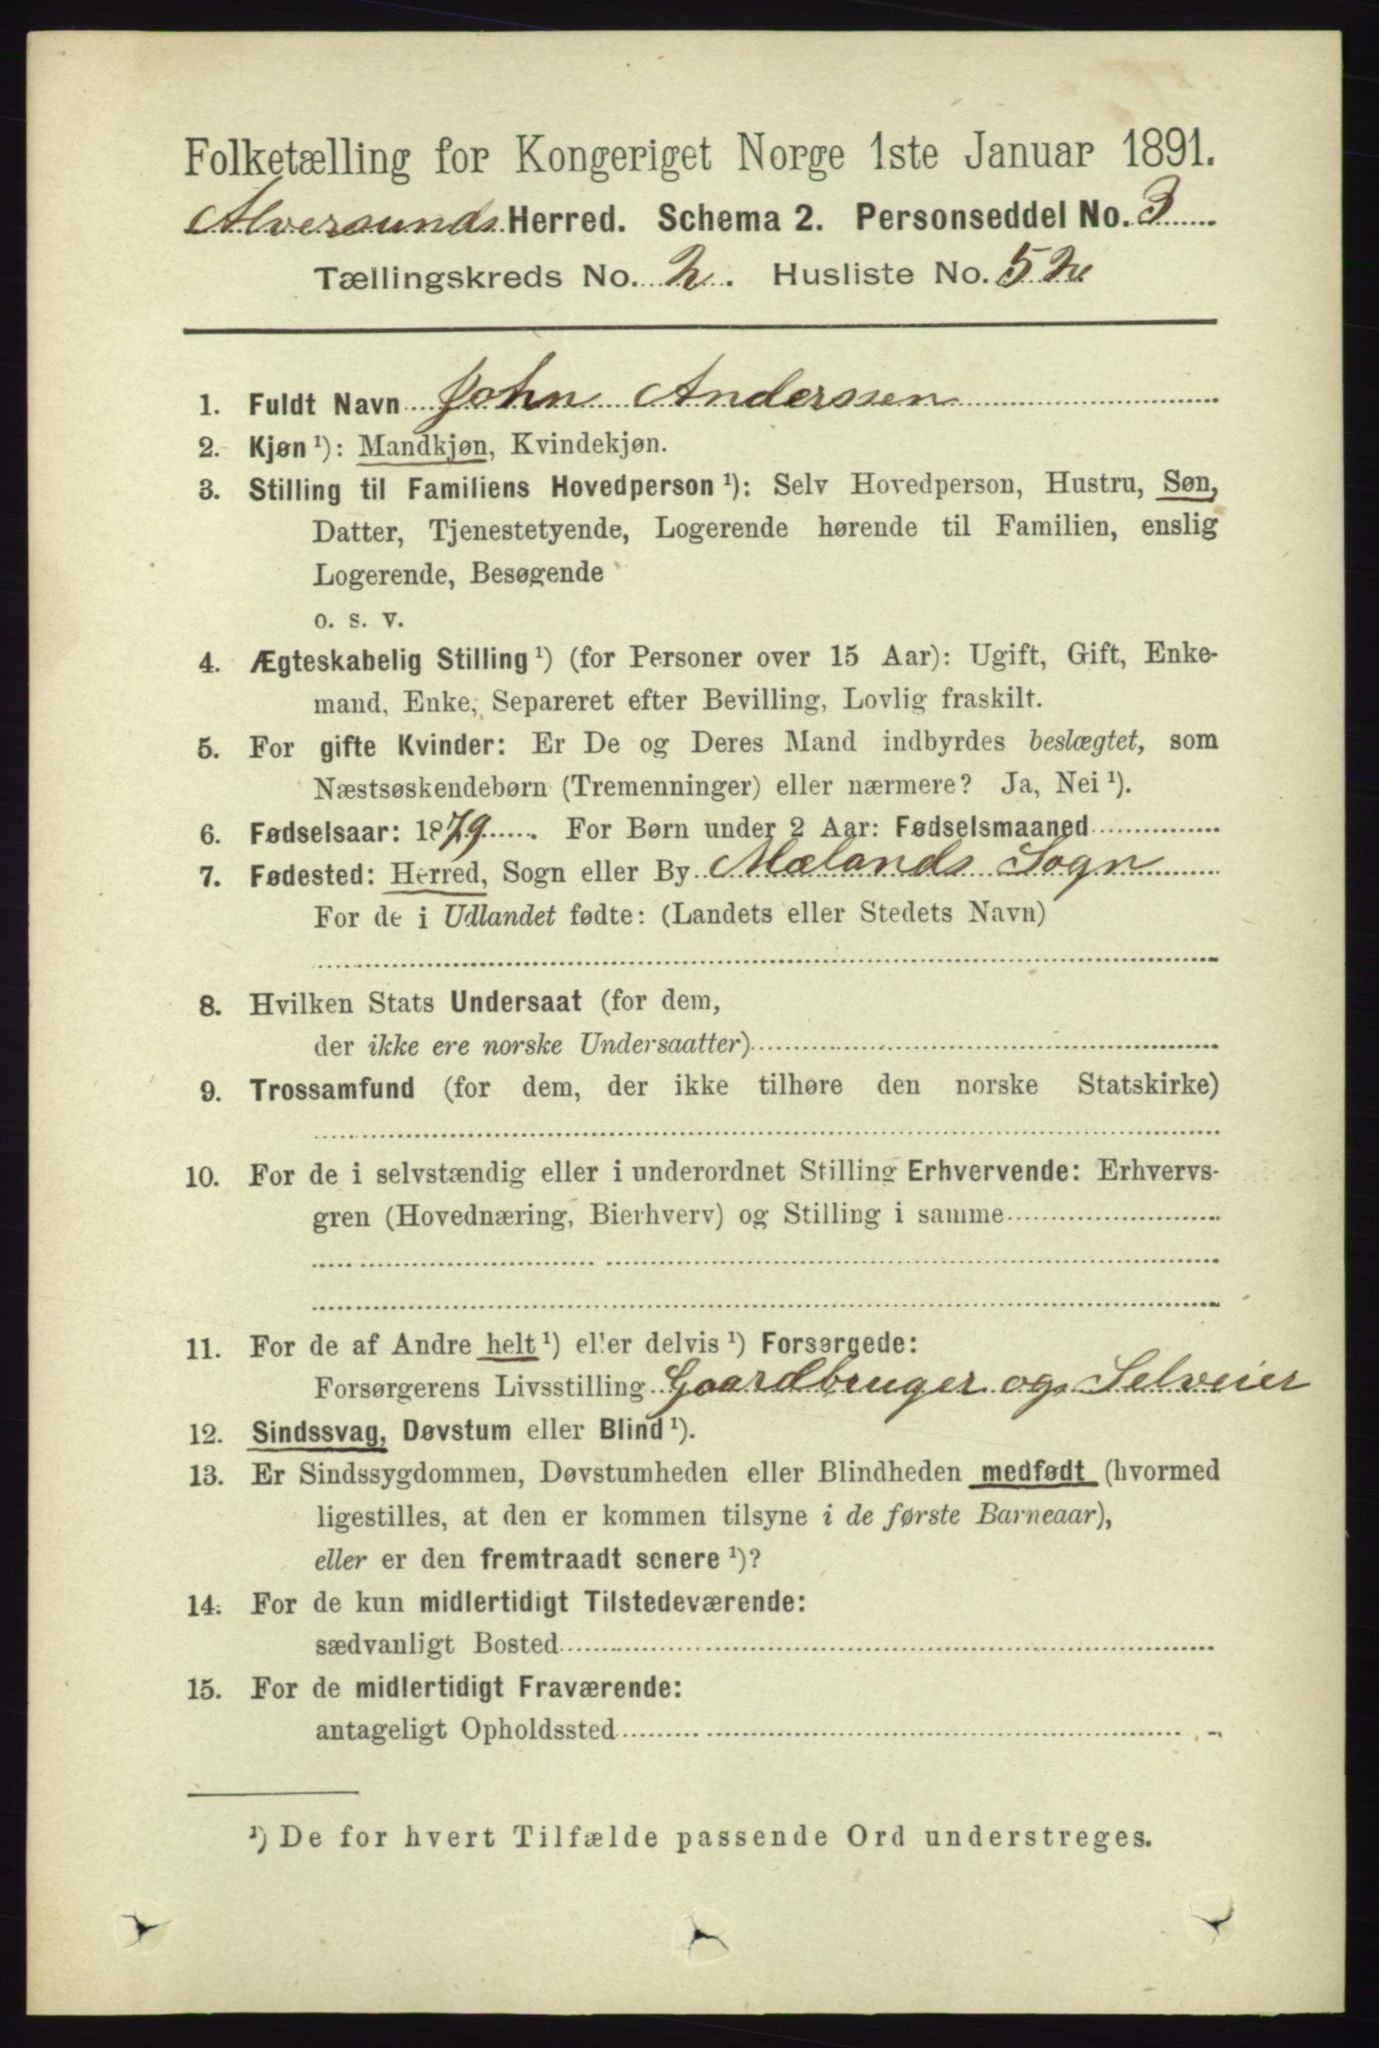 Folketælling for Kongeriget Norge 1ste Januar 1891.
Alversunds Herred. Schema 2. Personseddel No. 3
Tællingskreds No. 2. Husliste No. 52
1. Fuldt Navn John Anderssen
2. Kjøn ¹): Mandkjøn, Kvindekjøn.
3. Stilling til Familiens Hovedperson ¹): Selv Hovedperson, Hustru, Søn,
Datter, Tjenestetyende, Logerende hørende til Familien, enslig
Logerende, Besøgende
o. s. v.
4. Ægteskabelig Stilling ¹) (for Personer over 15 Aar): Ugift, Gift, Enke-
mand, Enke, Separeret efter Bevilling, Lovlig fraskilt.
5. For gifte Kvinder: Er De og Deres Mand indbyrdes beslægtet, som
Næstsøskendebørn (Tremenninger) eller nærmere? Ja, Nei ¹).
6. Fødselsaar: 1879. For Børn under 2 Aar: Fødselsmaaned
7. Fødested: Herred, Sogn eller By Mælands Sogn
For de i Udlandet fødte: (Landets eller Stedets Navn)
8. Hvilken Stats Undersaat (for dem,
der ikke ere norske Undersaatter)
9. Trossamfund (for dem, der ikke tilhøre den norske Statskirke)
10. For de i selvstændig eller i underordnet Stilling Erhvervende: Erhvervs-
gren (Hovednæring, Bierhverv) og Stilling i samme
11. For de af Andre helt ¹) eller delvis ¹) Forsørgede:
Forsørgerens Livsstilling Gaardbruger og Selveier
12. Sindssvag, Døvstum eller Blind ¹).
13. Er Sindssygdommen, Døvstumheden eller Blindheden medfødt (hvormed
ligestilles, at den er kommen tilsyne i de første Barneaar),
eller er den fremtraadt senere ¹)?
14. For de kun midlertidigt Tilstedeværende:
sædvanligt Bosted
15. For de midlertidigt Fraværende:
antageligt Opholdssted
¹) De for hvert Tilfælde passende Ord understreges.